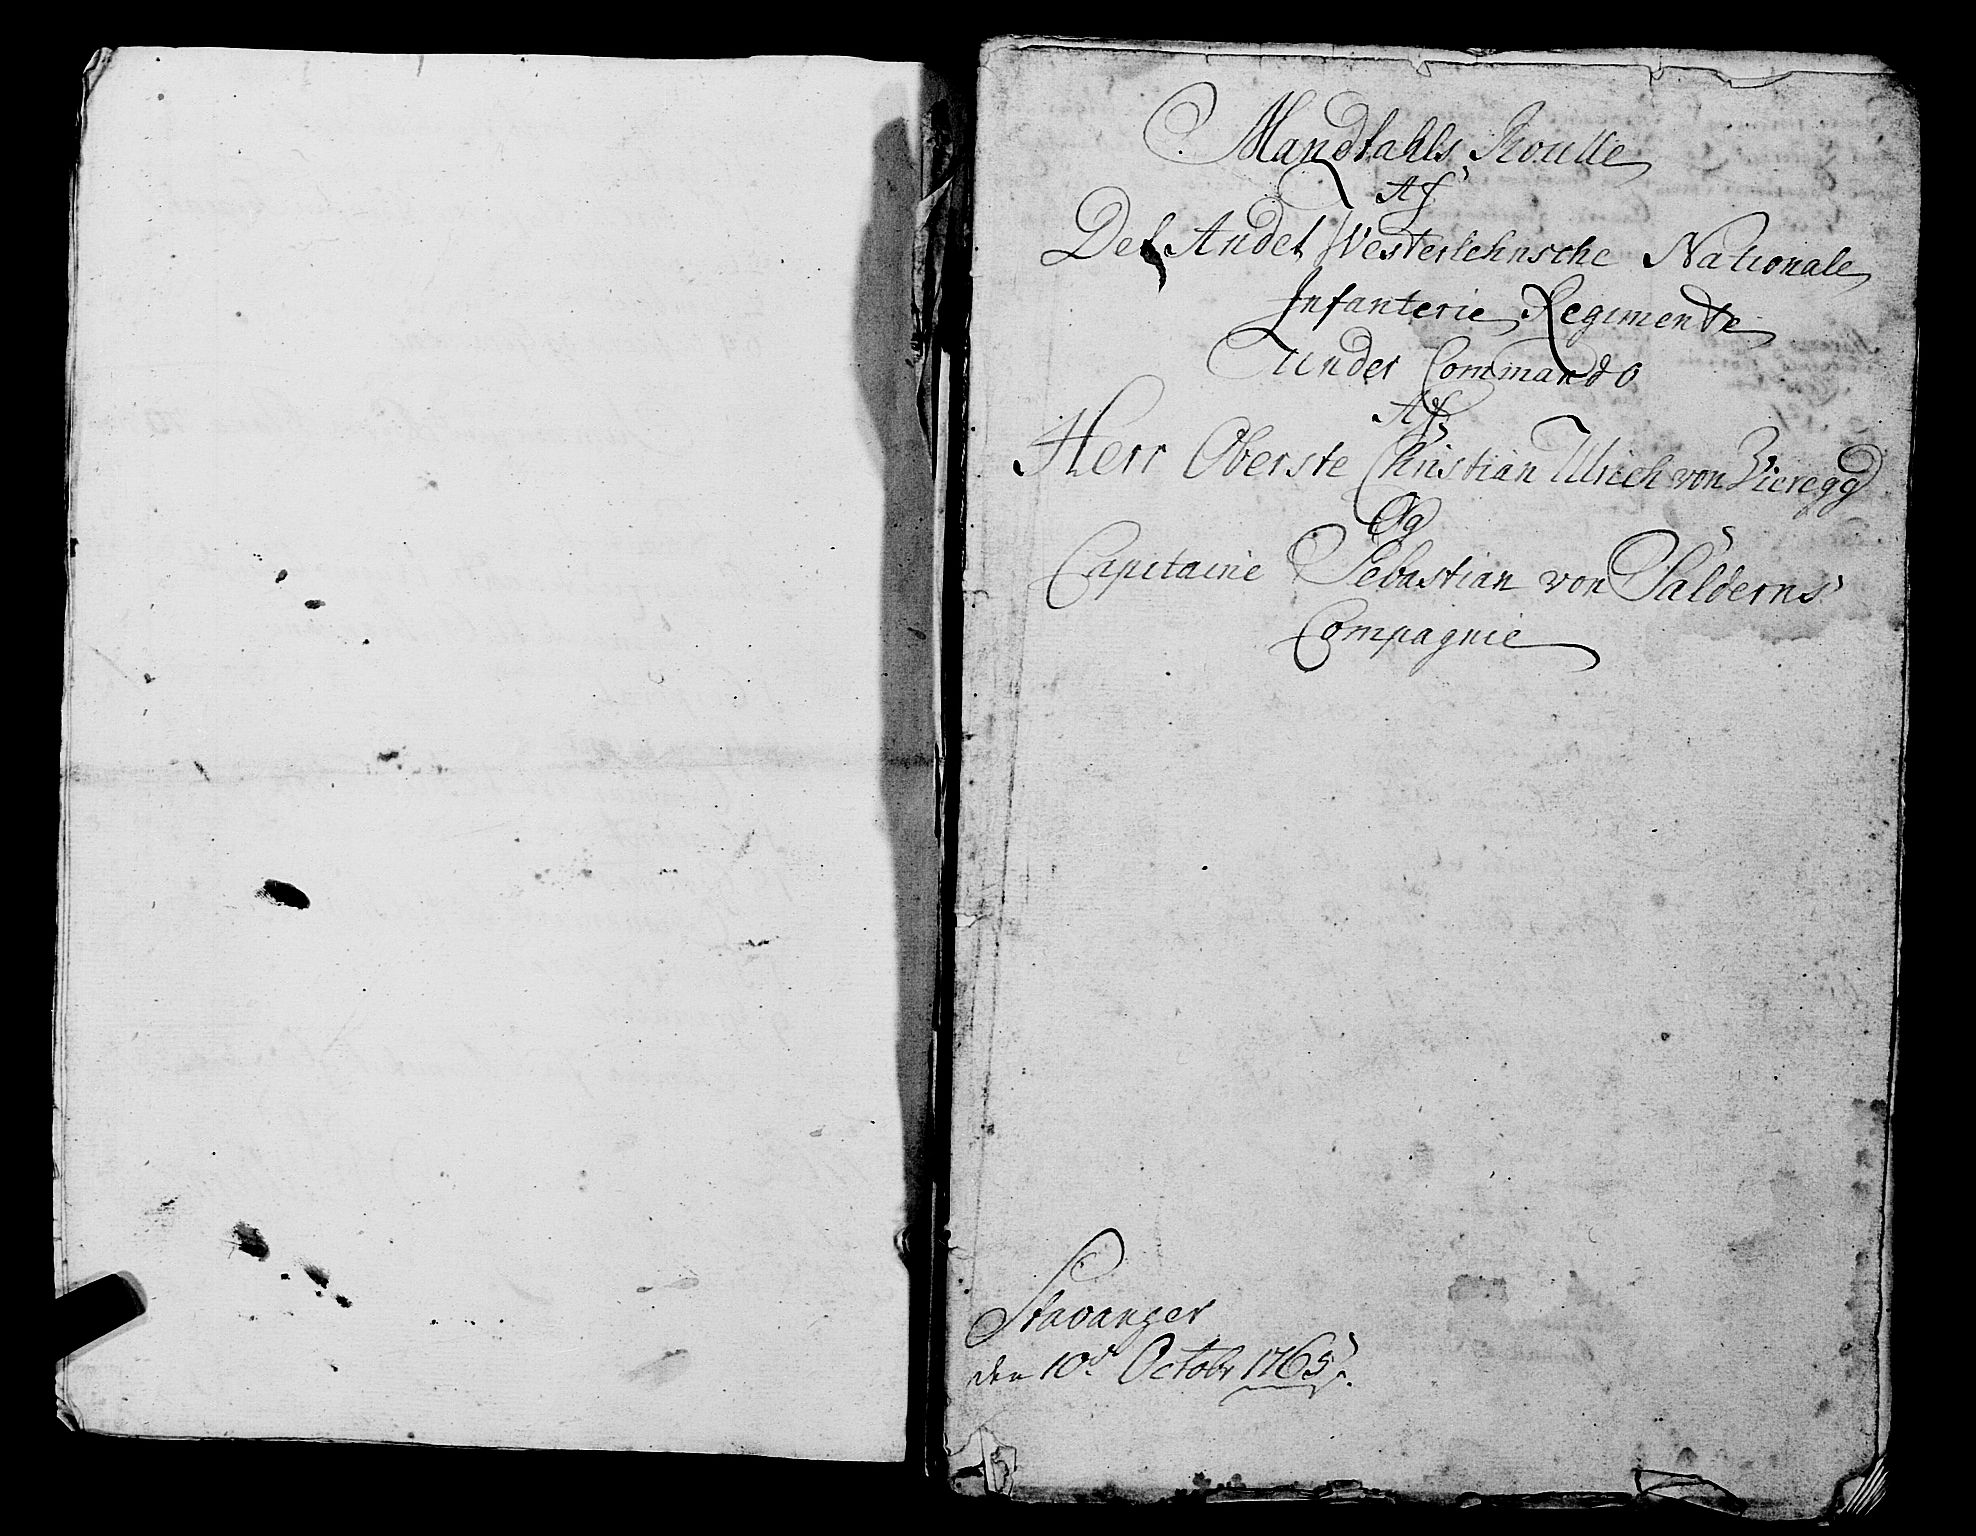 Mandtahls Roulle
Af
Det Andet Westerlehnsche Nationale
Infanterie Regimente
under Commando
Af
Herr Oberste Christian Ulrich von Vieregg
Og
Capitaine Sebastian von Salderns
Compagnie
Stavanger
den 10d. Octobr 1765.